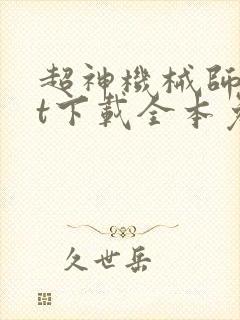 超神機械師
t下載全本
久世岳